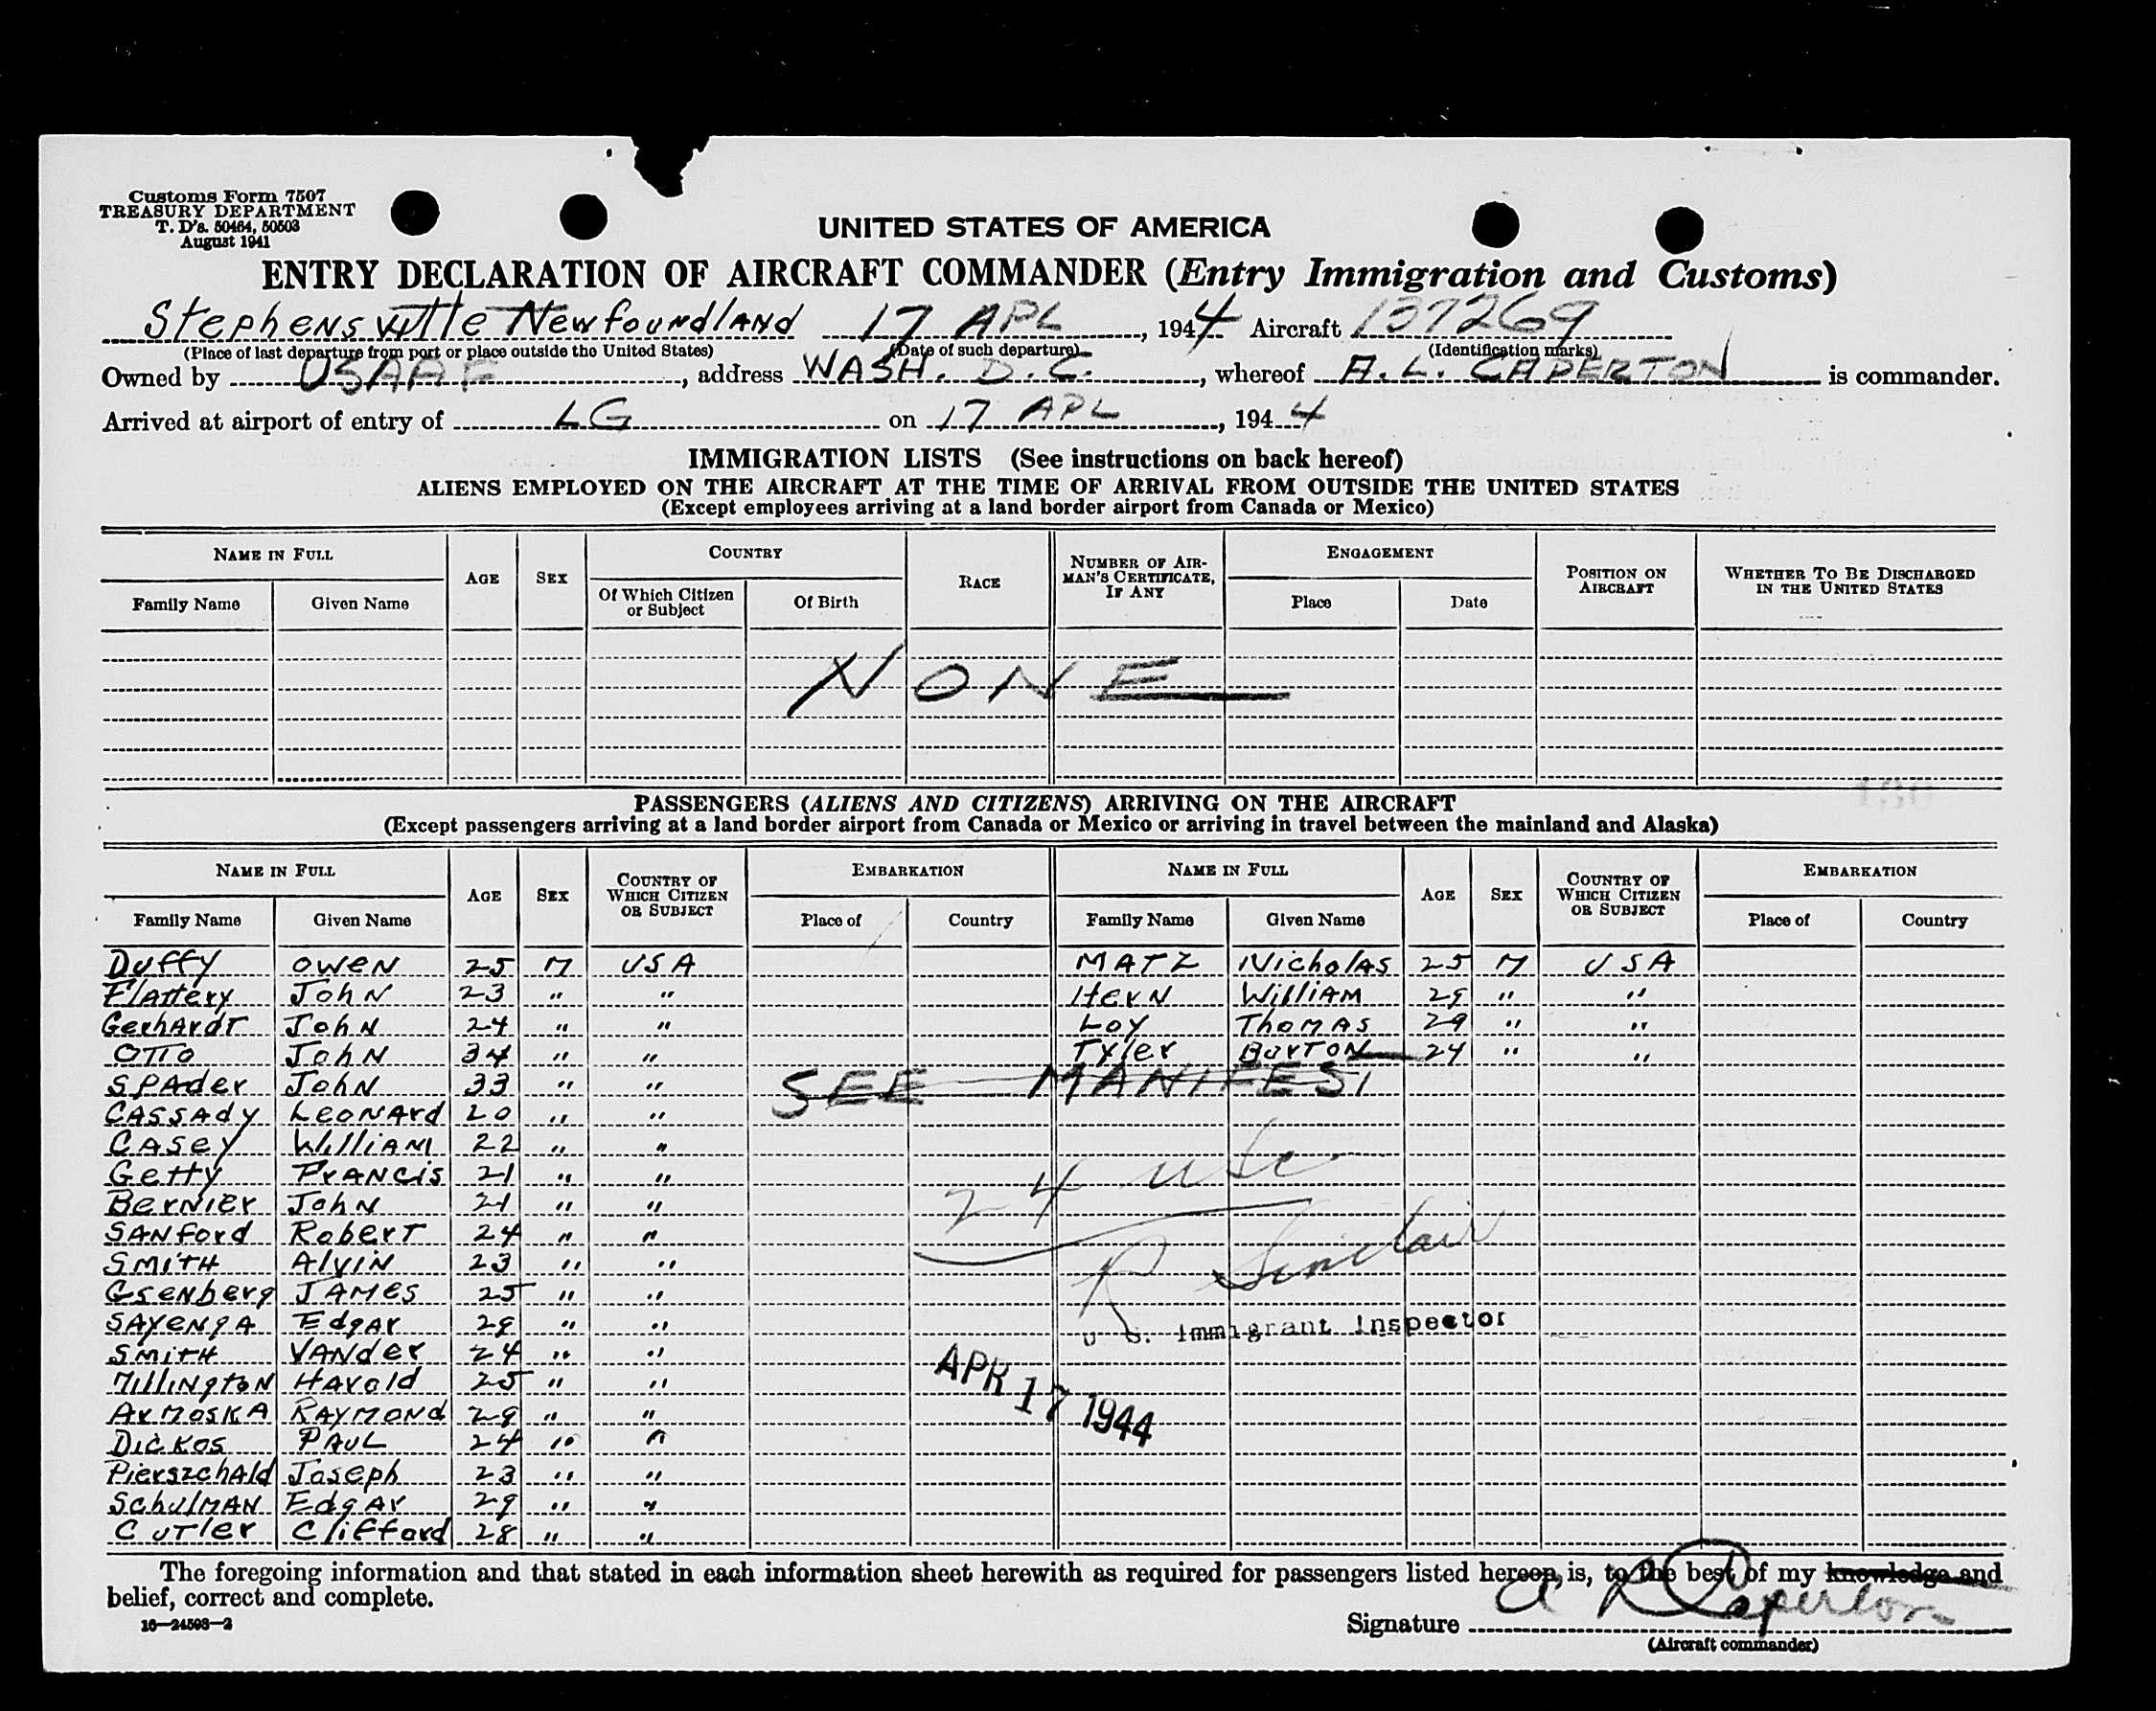 Customs Form 7507
TREASURY DEPARTMENT
T. D's. 50464, 50503
August 1941
UNITED STATES OF AMERICA
ENTRY DECLARATION OF AIRCRAFT COMMANDER (Entry Immigration and Customs)
Stephensville Newfoundland 17 APL, 1944 Aircraft 137269
(Place of last departure from port or place outside the United States) (Date of such departure) (Identification marks)
Owned by USAAF, address WASH. D.C., whereof A.L. CAPERTON is commander.
Arrived at airport of entry of LG on 17 APL, 1944
IMMIGRATION LISTS (See instructions on back hereof)
ALIENS EMPLOYED ON THE AIRCRAFT AT THE TIME OF ARRIVAL FROM OUTSIDE THE UNITED STATES
(Except employees arriving at a land border airport from Canada or Mexico)
NAME IN FULL AGE SEX COUNTRY RACE NUMBER OF AIRMAN'S CERTIFICATE, IF ANY ENGAGEMENT POSITION ON AIRCRAFT WHETHER TO BE DISCHARGED IN THE UNITED STATES
Family Name Given Name Of Which Citizen or Subject Of Birth Place Date
NONE
PASSENGERS (ALIENS AND CITIZENS) ARRIVING ON THE AIRCRAFT
(Except passengers arriving at a land border airport from Canada or Mexico or arriving in travel between the mainland and Alaska)
NAME IN FULL AGE SEX COUNTRY OF WHICH CITIZEN OR SUBJECT EMBARKATION NAME IN FULL AGE SEX COUNTRY OF WHICH CITIZEN OR SUBJECT EMBARKATION
Family Name Given Name Place of Country Family Name Given Name Place of Country
Duffy Owen 25 M USA MATZ Nicholas 25 M USA
Flattery John 23 " " Hern William " "
Gerhardt John 24 " " Loy Thomas 29 " "
OTTO John 34 " " Tyler Burton 24 " "
Spader John 33 " " SEE MANIFEST
Cassady Leonard 20 " "
Casey William 22 " "
Getty Francis 21 " " 24 USC
Bernier John 21 " "
Sanford Robert 24 " " R Sinclair
Smith Alvin 23 " "
James 25 " "
Sayenga Edgar " " U S. Immigrant Inspector
Smith Vander 24 " "
Millington Harold 25 " " APR 17 1944
Armoska Raymond 28 " "
Dickos Paul 24 " "
Pierszchald Joseph 23 " "
Schulman Edgar 29 " "
Cutler Clifford 28 " "
The foregoing information and that stated in each information sheet herewith as required for passengers listed hereon is, to the best of my knowledge and
belief, correct and complete.
16—24508—2
Signature A L Caperton
(Aircraft commander)